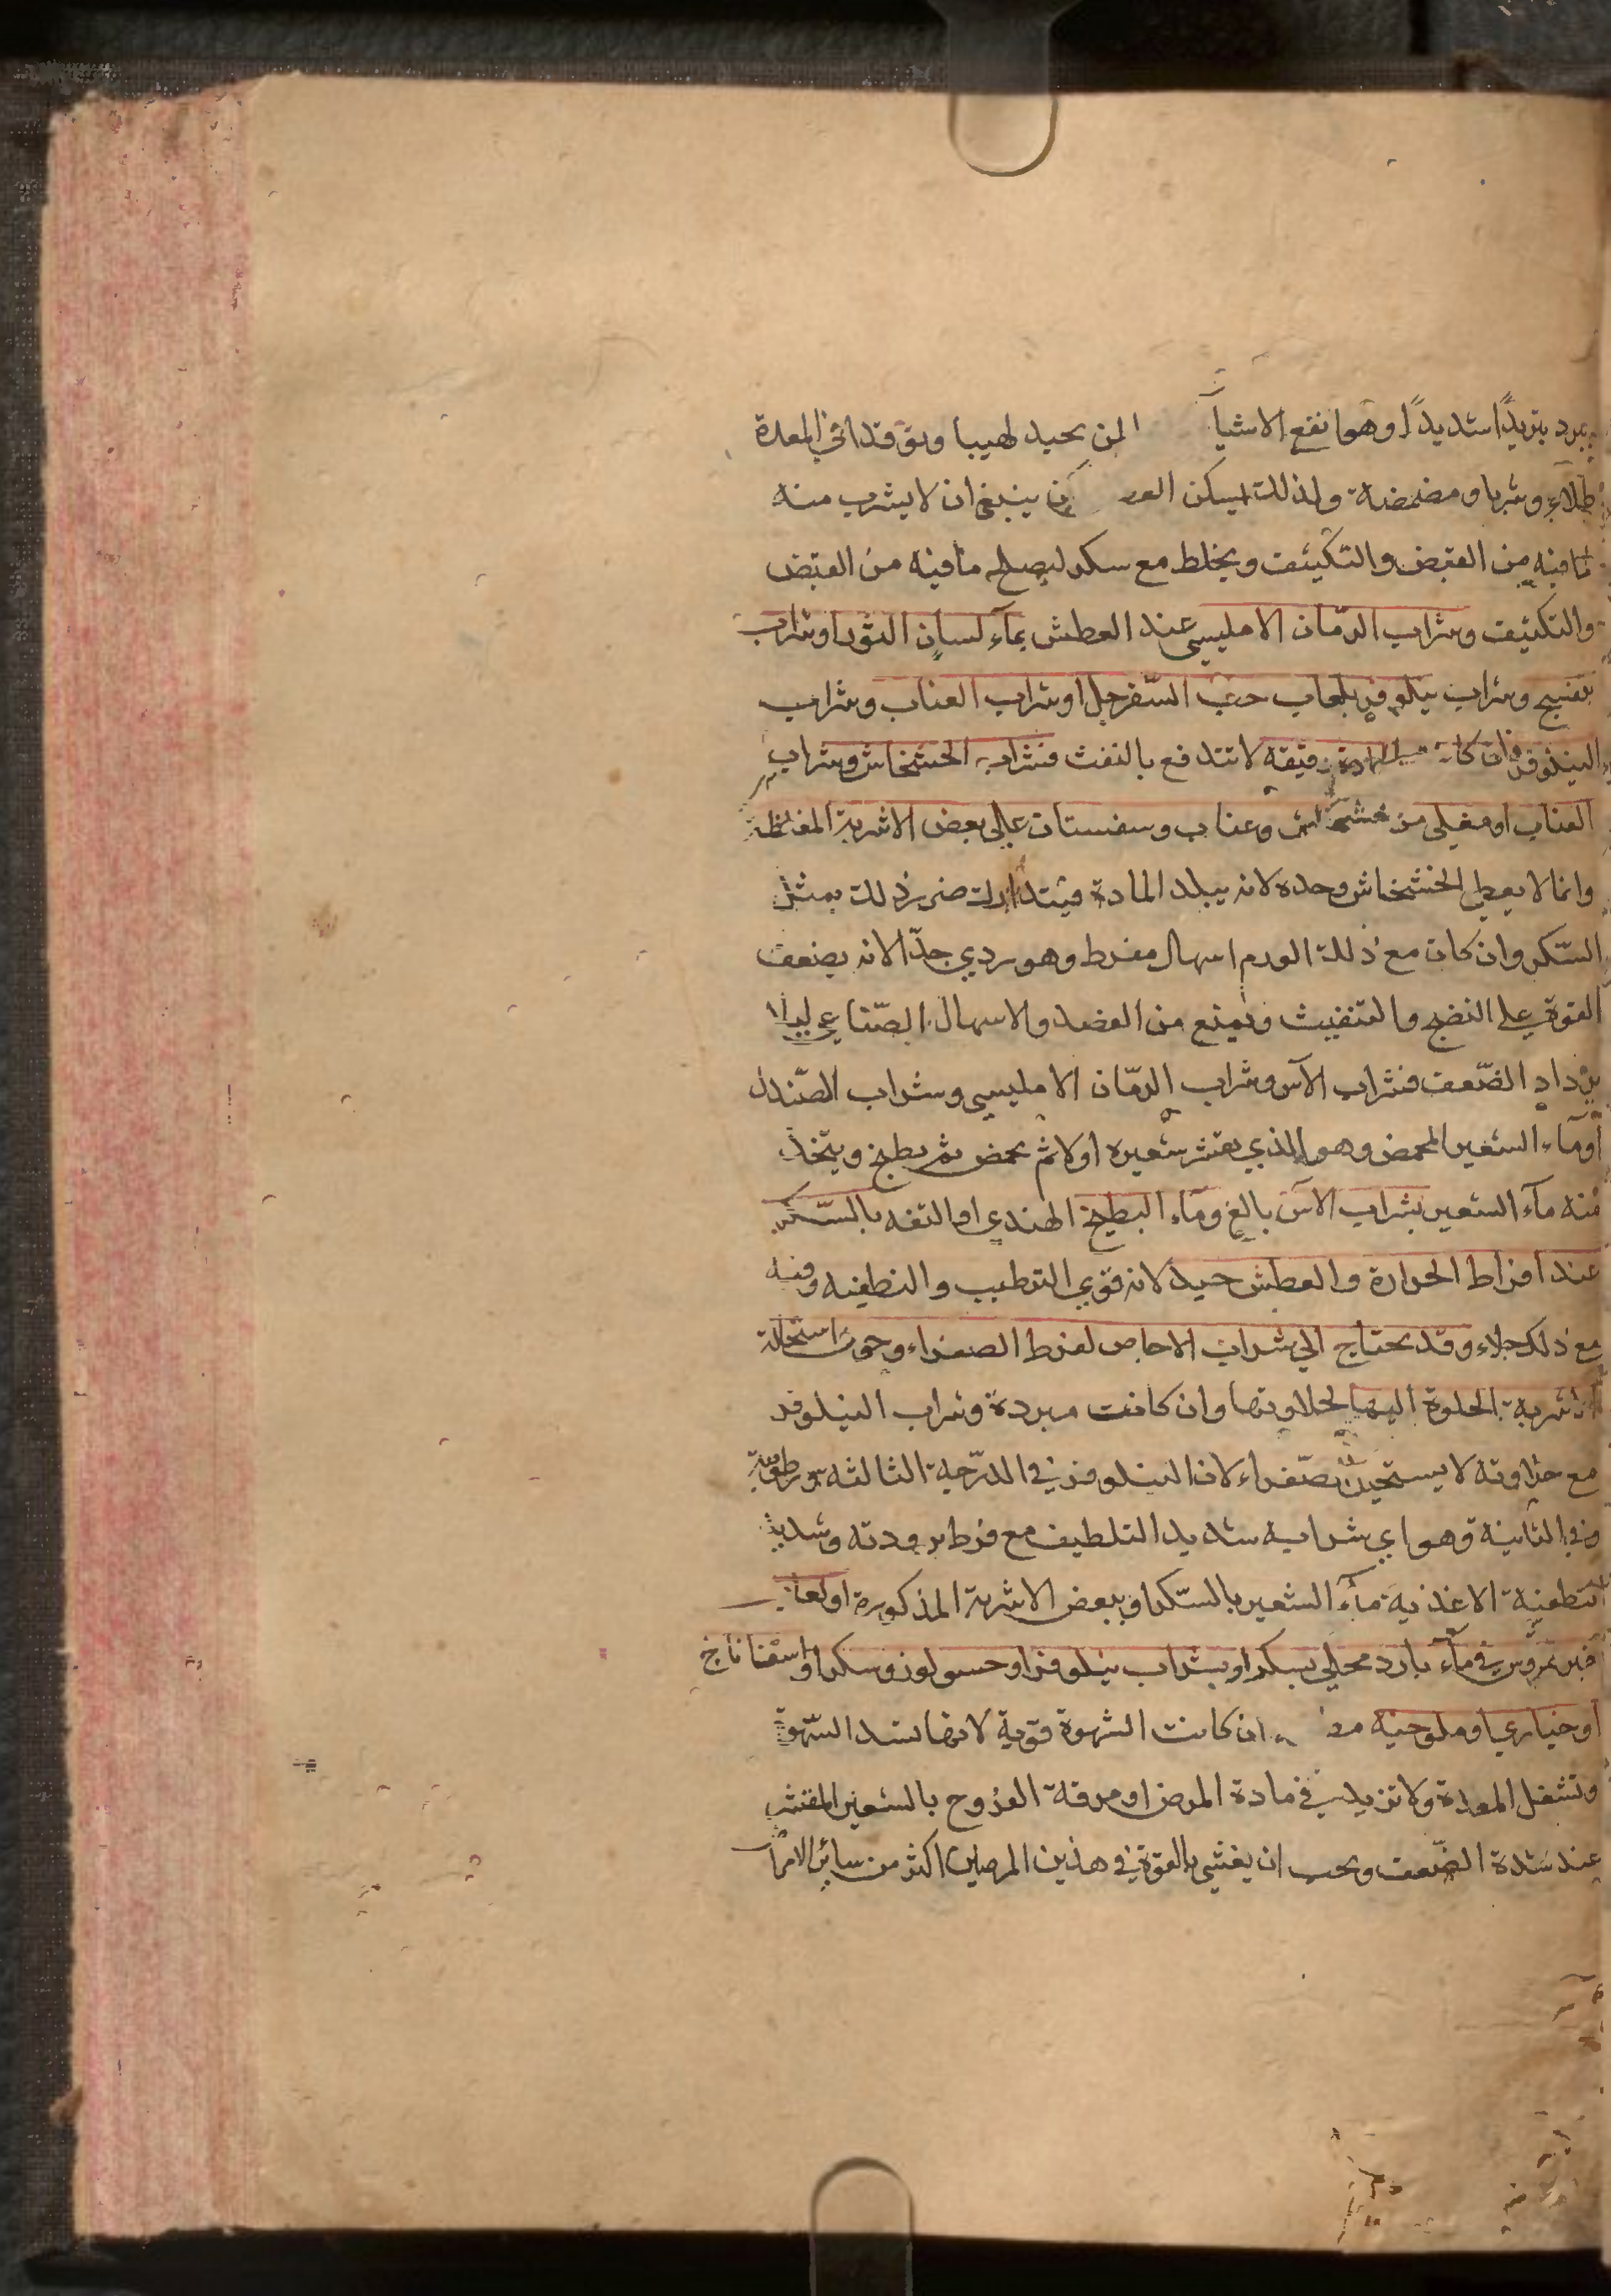 يبرد تبريدًا شديدًا وهو انفع الاشيآ لمن يجد لهيبا وتوقدا في المعدة
طلاءً وشربا ومضمضة ولذلك يسكن ينبغي ان لا يشرب منه
ما فيه من القبض والتكثيف ويخلط مع سكر ليصلح ما فيه من القبض
والتكثيف وشراب الرمّان الامليسي عند العطش بمآء لسان الثور او شراب
بنفسج وشراب نيلوفر بلعاب حبّ السّفرجل او شراب العناب وشراب
النيلوفر فان كانت المادة رقيقة لا تندفع بالنفث فشراب الخشخاش وشراب
العناب او مغلى من خشخاش وعناب وسفستان على بعض الاشربة المغلظة
وانما لا يعطى الخشخاش وحده لانه يبلد المادة فيتدارك ضرر ذلك بمثل
السّكر وان كان مع ذلك الورم اسهال مفرط وهو ردي جدّا لانه يضعف
القوة على النضج والتنفيث ويمنع من الفصد والاسهال الصّناعي ليلا
يزداد الضّعف فشراب الآس وشراب الرمّان الامليسي وشراب الصّندل
او مآء الشعير المحمص وهو الذي يقشر شعيره اولا ثم يحمص ثم يطبخ ويتخذ
منه مآء الشعير بشراب الآس بالغ ومآء البطيخ الهندي او التفه بالسّكر
عند افراط الحرارة والعطش جيد لانه قوي الترطيب والتطفيه وفيه
مع ذلك جلاء وقد يحتاج الى شراب الاجاص لفرط الصفراء وخوف استحالة
الاشربة الحلوة اليها لحلاوتها وان كانت مبردة وشراب النيلوفر
مع حلاوته لا يستحيل صّفراء لان النيلوفر في الدرّجة الثالثة ورطوبة
وفي الثانية وهو اي شرابه شديد التلطيف مع فرط برودته وشديد
التطفية الاغذية مآء الشعير بالسّكر او ببعض الاشربة المذكورة او لعاب
خبز ممروس في مآء بارد محلى بسكر او بشراب نيلوفر او حسو لوز وسكر او اسفاناخ
او خياري او ملوخيه ان كانت الشهوة قوية لانها تسد الشهوة
وتشغل المعدة ولا تزيد في مادة المرض او مرقة الفرّوج بالشعير المقشر
عند شدة الضّعف ويجب ان يعتنى بالقوة في هذين المرضين اكثر من سائر الامرا